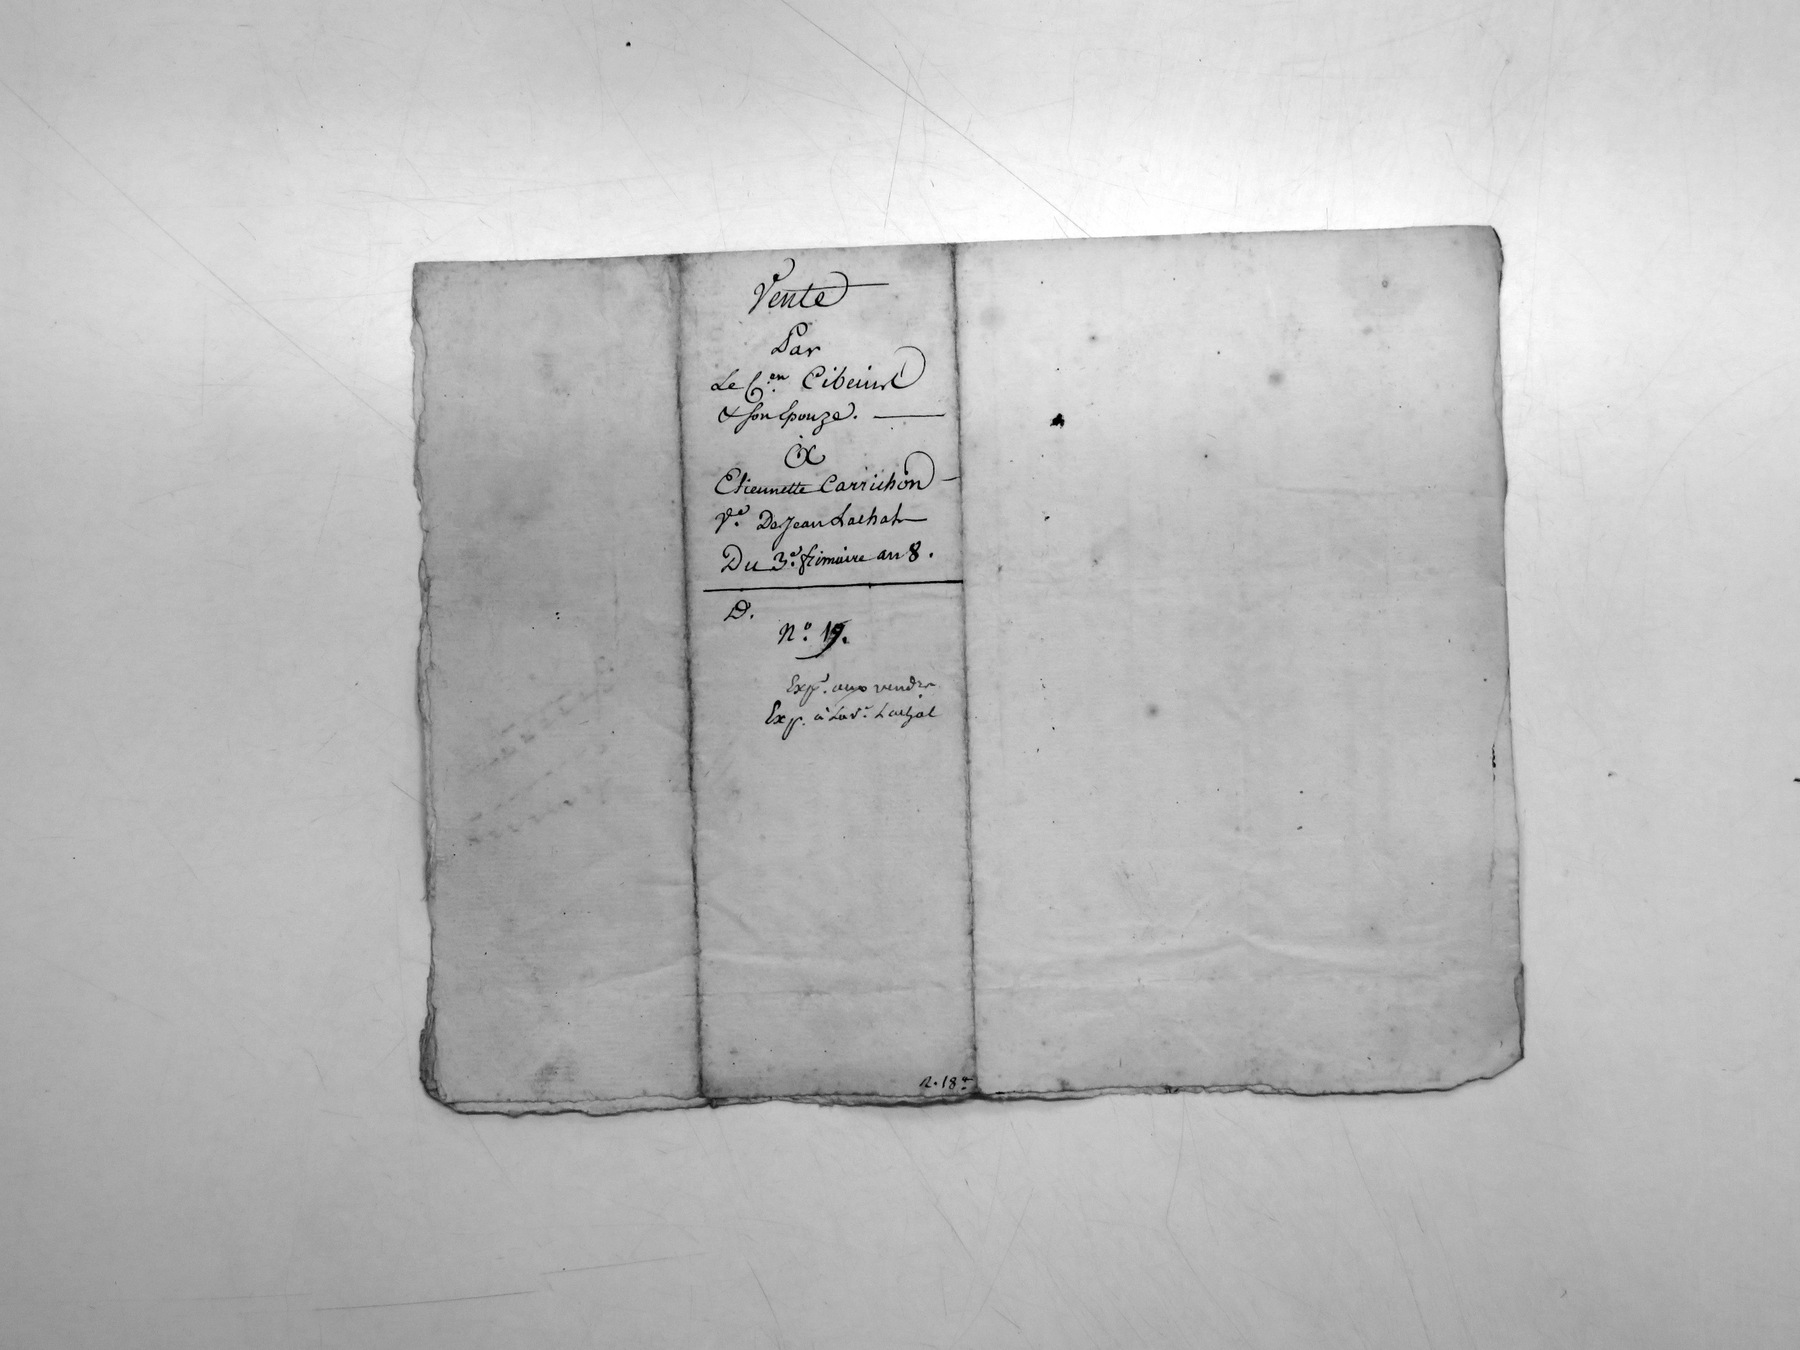 Vente
Par
Le C.en Cibeins
& son Epouze.
à
Etiennette Carrichon
V.e De Jean Lachat
Du 3.e frimaire an 8.
D.
N.o 19.
Exp. aux vendrs
Exp. à la v.e Lachat
R. 18e